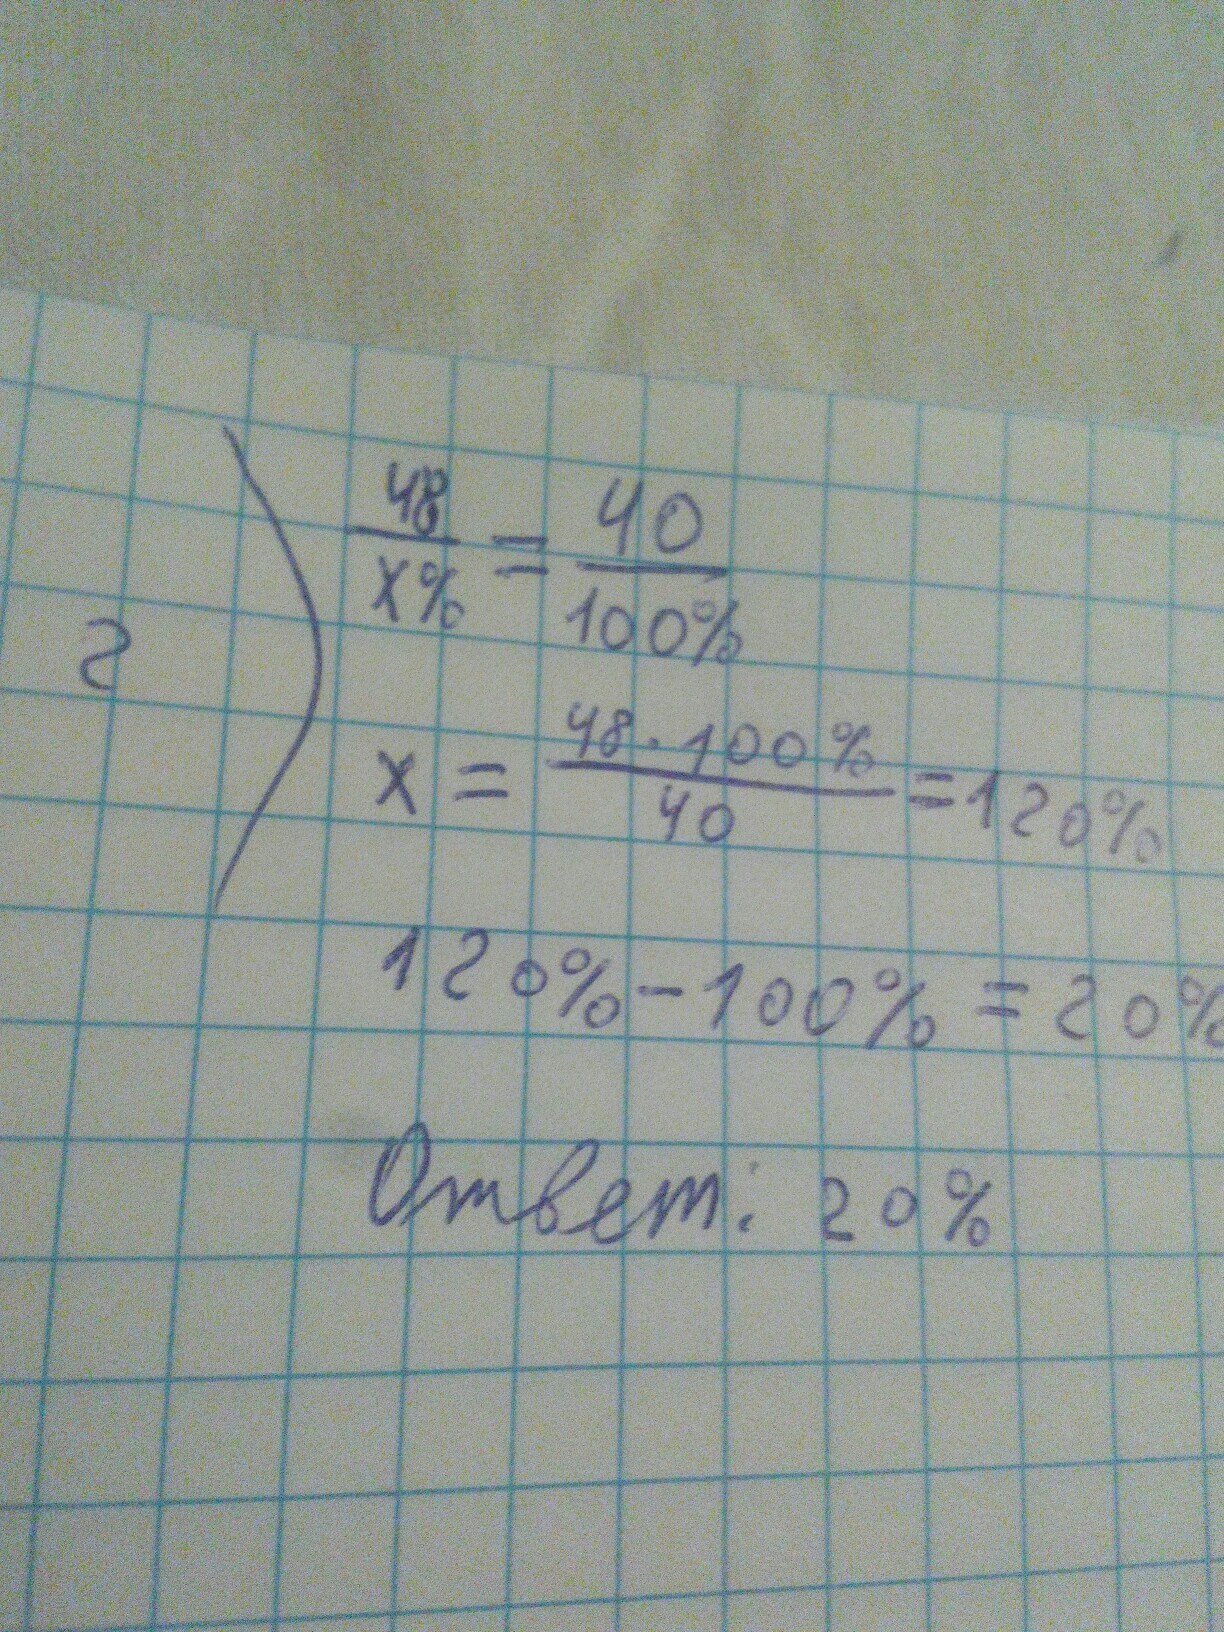 2) 48/x% = 40/100%
x = 48·100%/40 = 120%
120% - 100% = 20%
Ответ: 20%